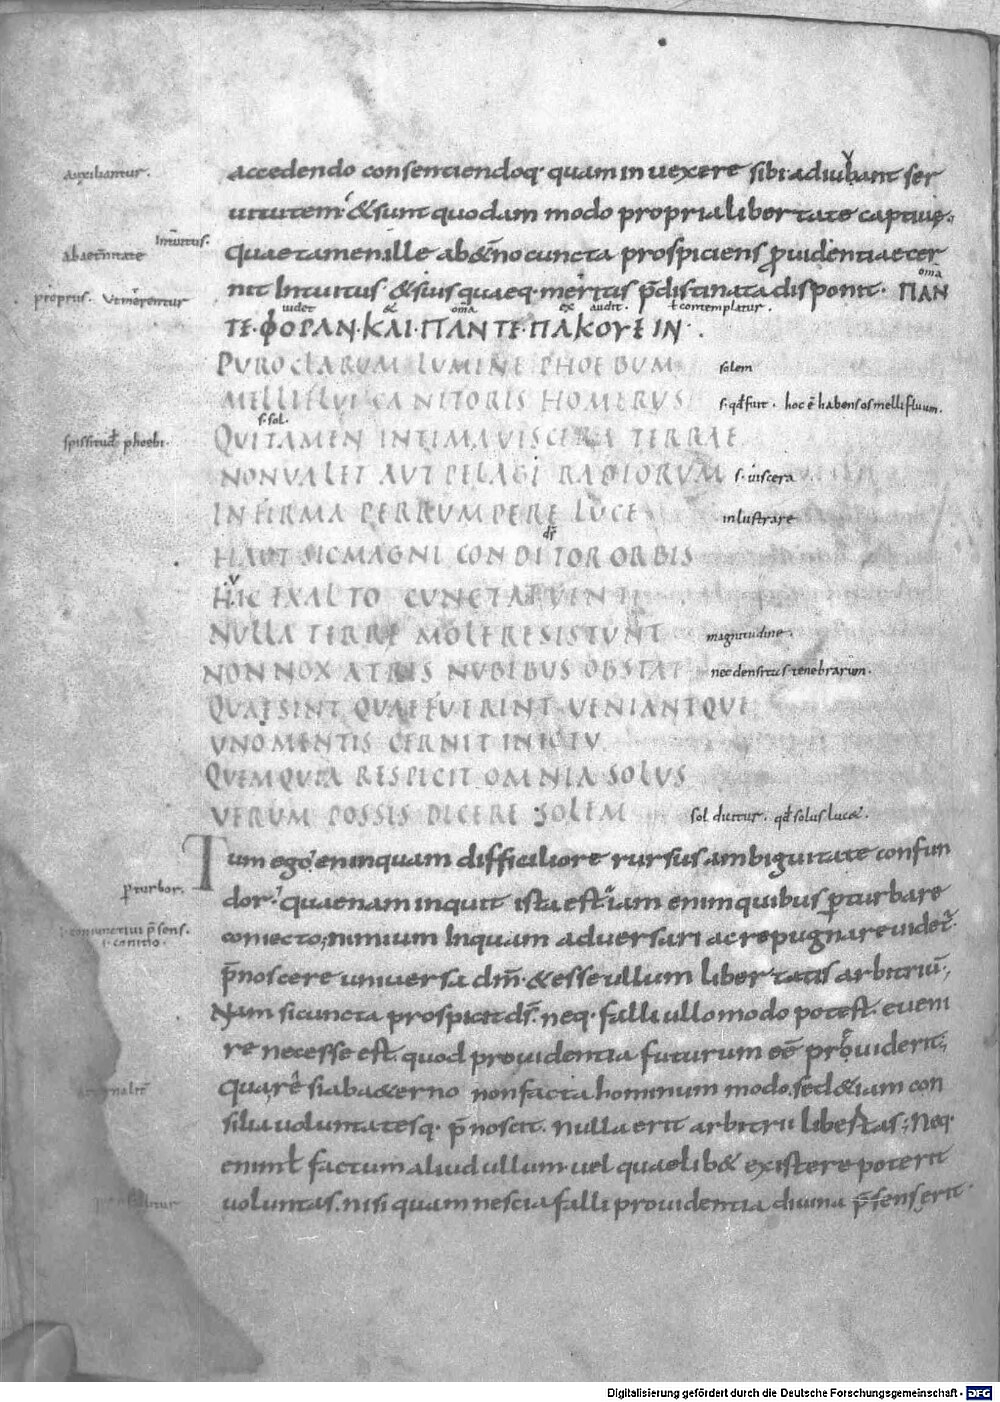 auxiliantur. accedendo consentiendoq· quam inuexere sibi adiuuant ser
uitutem· & sunt quodam modo propria libertate captiue·
Intuitus.
ab aet̄nitate Quae tamen ille ab &̄no cuncta prospiciens p̱uidentiae cer
oma
proprus. Vt merentur nit Intuitus· & suis quaeq· meritis p̄distinata disponit· ΠΑΝ
uidet & oma ex audit· ł contemplatur.
ΤΕ·ΦΟΡΑΝ·ΚΑΙ·ΠΑΝ ΤΕ·ΠΑΚΟΥΕΙΝ·.
PURO CLARUM LUMINE PHOEBUM solem
MELLIFLUI CANIT ORIS HOMERUS s· qđ fuit· hoc ē habens os mellifluum.
s· sol·
spissitud̄ phoebi· QUI TAMEN INTIMA VISCERA TERRAE
NON VALET AUT PELAGI RADIORUM s· uiscera
INFIRMA PERRUMPERE LUCE inlustrare
dr̄
HAUT SIC MAGNI CONDITOR ORBIS
v
HIC EX ALTO CUNCTA TUENTI
NULLA TERRE MOLE RESISTUNT magnitudine.
NON NOX ATRIS NUBIBUS OBSTAT nec densitas tenebrarum.
QUAE SINT QUAE FUERINT VENIANTQUE
UNO MENTIS CERNIT IN ICTU
QUEM QUIA RESPICIT OMNIA SOLUS
VERUM POSSIS DICERE SOLEM sol dicitur. qđ solus luc&.
Tum ego en inquam difficiliore rursus ambiguitate confun
p̱turbor. dor· quaenam inquit ista est· iam enim quibus p̱turbare
coniecto; nimium Inquam aduersari ac repugnare uidet̄
p̄noscere uniuersa dm̄· & esse ullum libertatis arbitriū;
Nam si cuncta prospicit ds̄· neq· falli ullo modo potest· eueni
re necesse est· quod prouidentia futurum eē prouiderit;
Quare si ab a&erno non facta hominum modo· sed &iam con
silia uoluntatesq· p̄noscit· nulla erit arbitrii libertas; Neq·
enim ł factum aliud ullum· uel quaelib& existere poterit
uoluntas· nisi quam nescia falli prouidentia diuina p̄senserit·
Digitalisierung gefördert durch die Deutsche Forschungsgemeinschaft - DFG